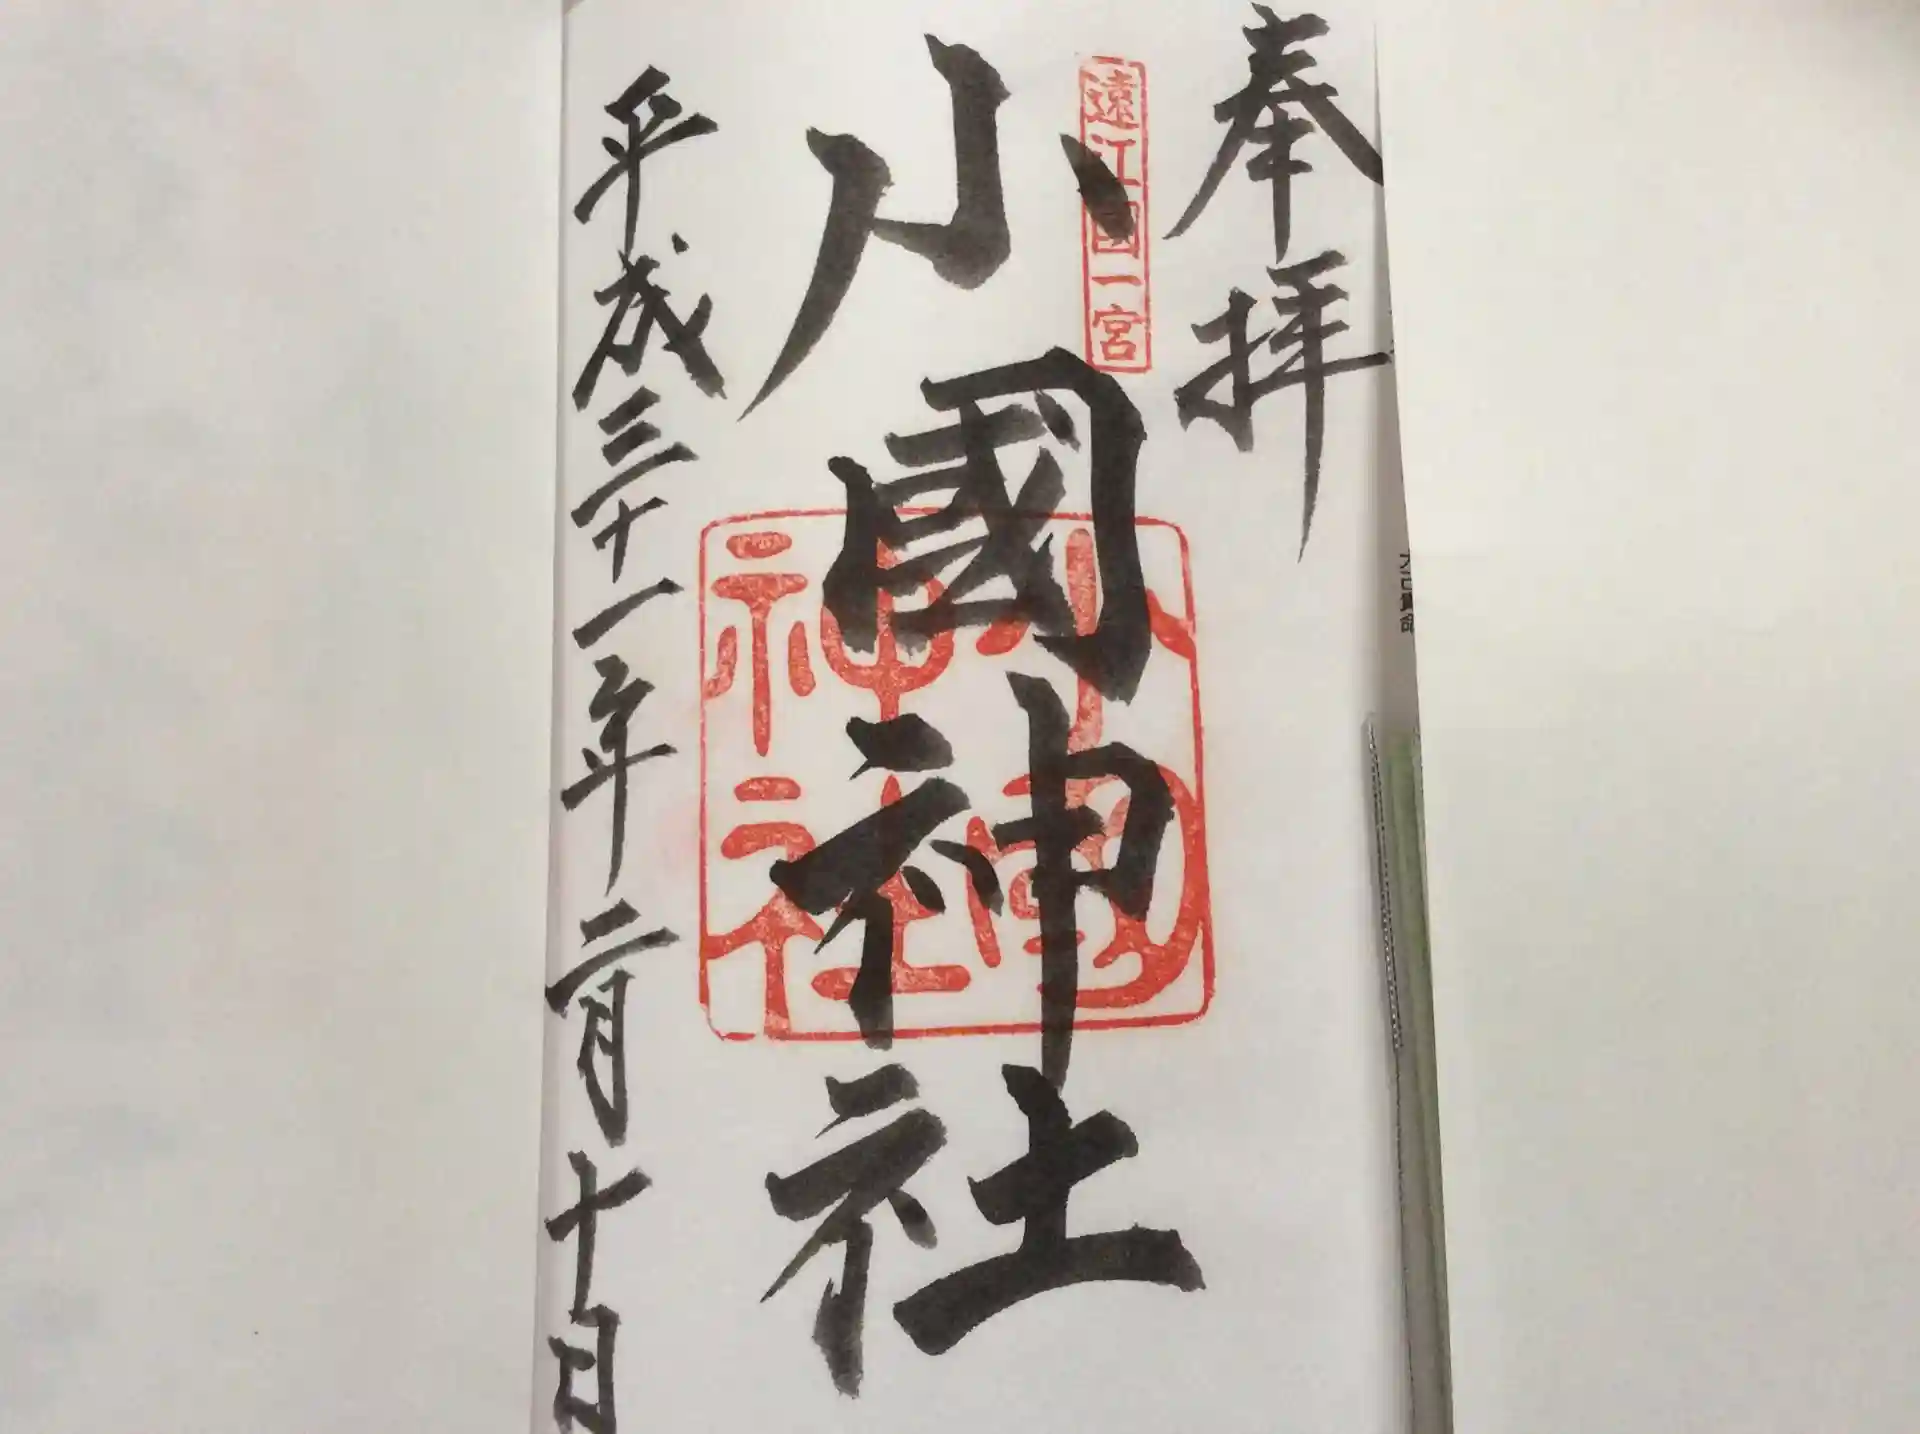 奉拝
遠江國一宮
小國神社
小國
神社
平成三十一年二月十日
大己貴命